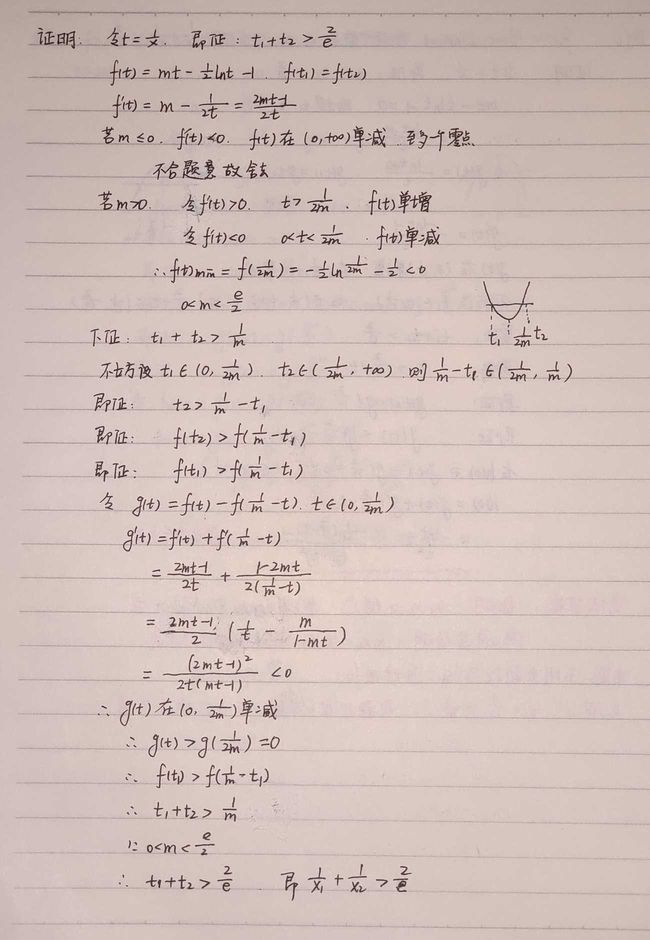 证明: 令t=1/x. 即证: t₁+t₂>2/e
f(t)=mt-½lnt-1. f(t₁)=f(t₂)
f'(t)=m-1/2t=(2mt-1)/2t
若m≤0. f'(t)<0. f(t)在(0,+∞)单减. 至多一个零点
不合题意故舍去
若m>0. 令f'(t)>0. t>1/2m. f(t)单增
令f'(t)<0 0<t<1/2m. f(t)单减
∴f(t)min=f(1/2m)=-½ln1/2m-½<0
0<m<e/2
t₁ 1/2m t₂
下证: t₁+t₂>1/m
不妨设t₁∈(0,1/2m). t₂∈(1/2m,+∞). 则1/m-t₁∈(1/2m,1/m)
即证: t₂>1/m-t₁
即证: f(t₂)>f(1/m-t₁)
即证: f(t₁)>f(1/m-t₁)
令g(t)=f(t)-f(1/m-t). t∈(0,1/2m)
g'(t)=f'(t)+f'(1/m-t)
=(2mt-1)/2t+(1-2mt)/2(1/m-t)
=(2mt-1)/2(1/t-m/(1-mt))
=(2mt-1)²/2t(mt-1)<0
∴g(t)在(0,1/2m)单减
∴g(t)>g(1/2m)=0
∴f(t₁)>f(1/m-t₁)
∴t₁+t₂>1/m
∵0<m<e/2
∴t₁+t₂>2/e 即1/x₁+1/x₂>2/e